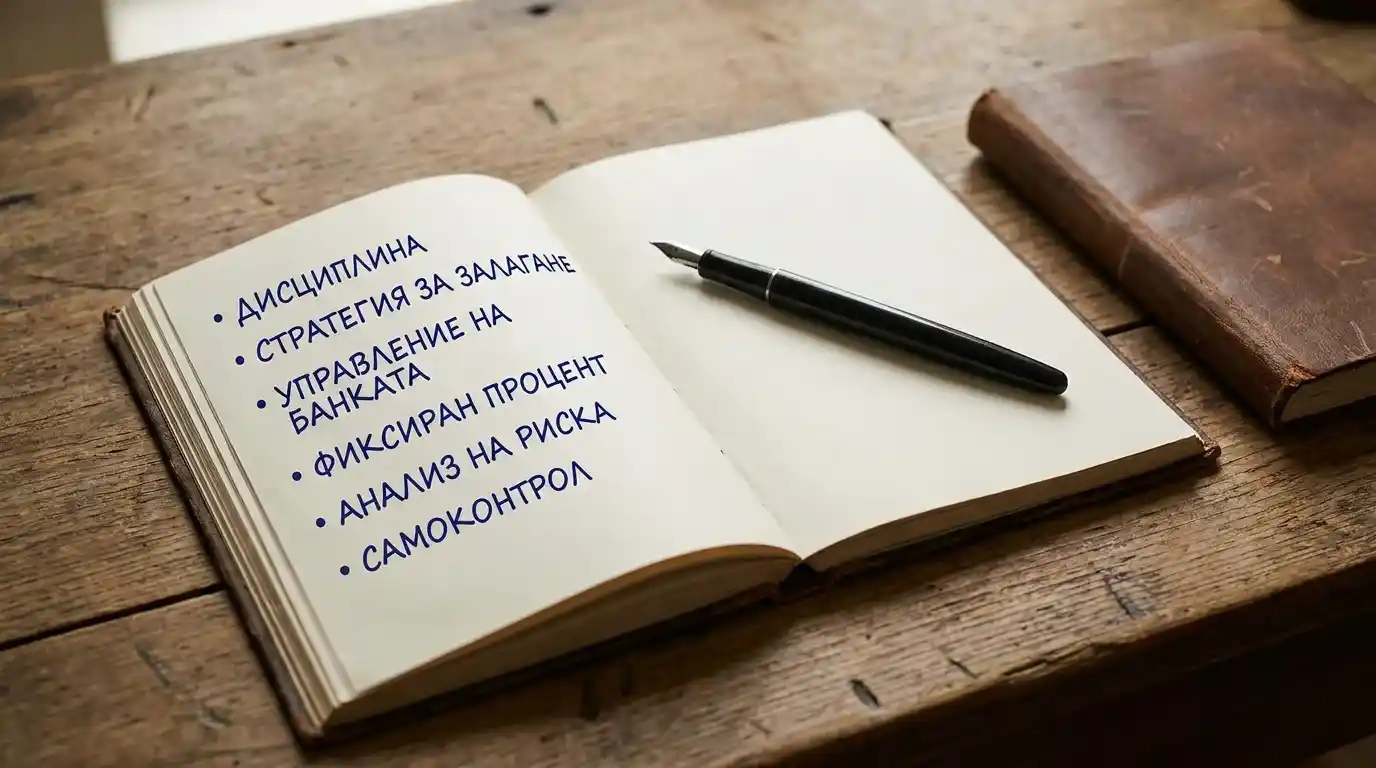 • ДИСЦИПЛИНА
• СТРАТЕГИЯ ЗА ЗАЛАГАНЕ
• УПРАВЛЕНИЕ НА
БАНКАТА
• ФИКСИРАН ПРОЦЕНТ
• АНАЛИЗ НА РИСКА
• САМОКОНТРОЛ